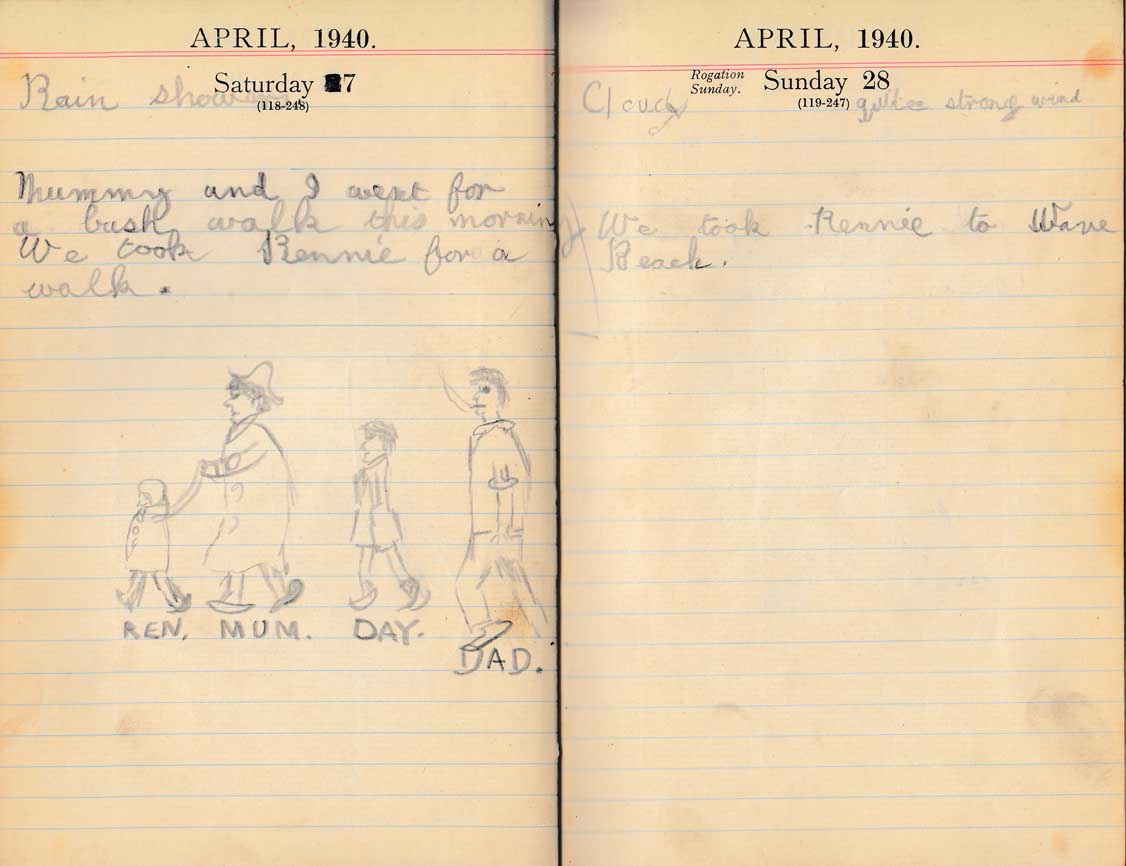 APRIL, 1940.
Saturday 27
(118-248)
Rain showers
Mummy and I went for
a bush walk this morning
We took Rennie for a
walk.
REN. MUM. DAY.
DAD.
APRIL, 1940.
Rogation
Sunday.
Sunday 28
(119-247)
Cloudy quite strong wind
We took Rennie to Wave
Beach.